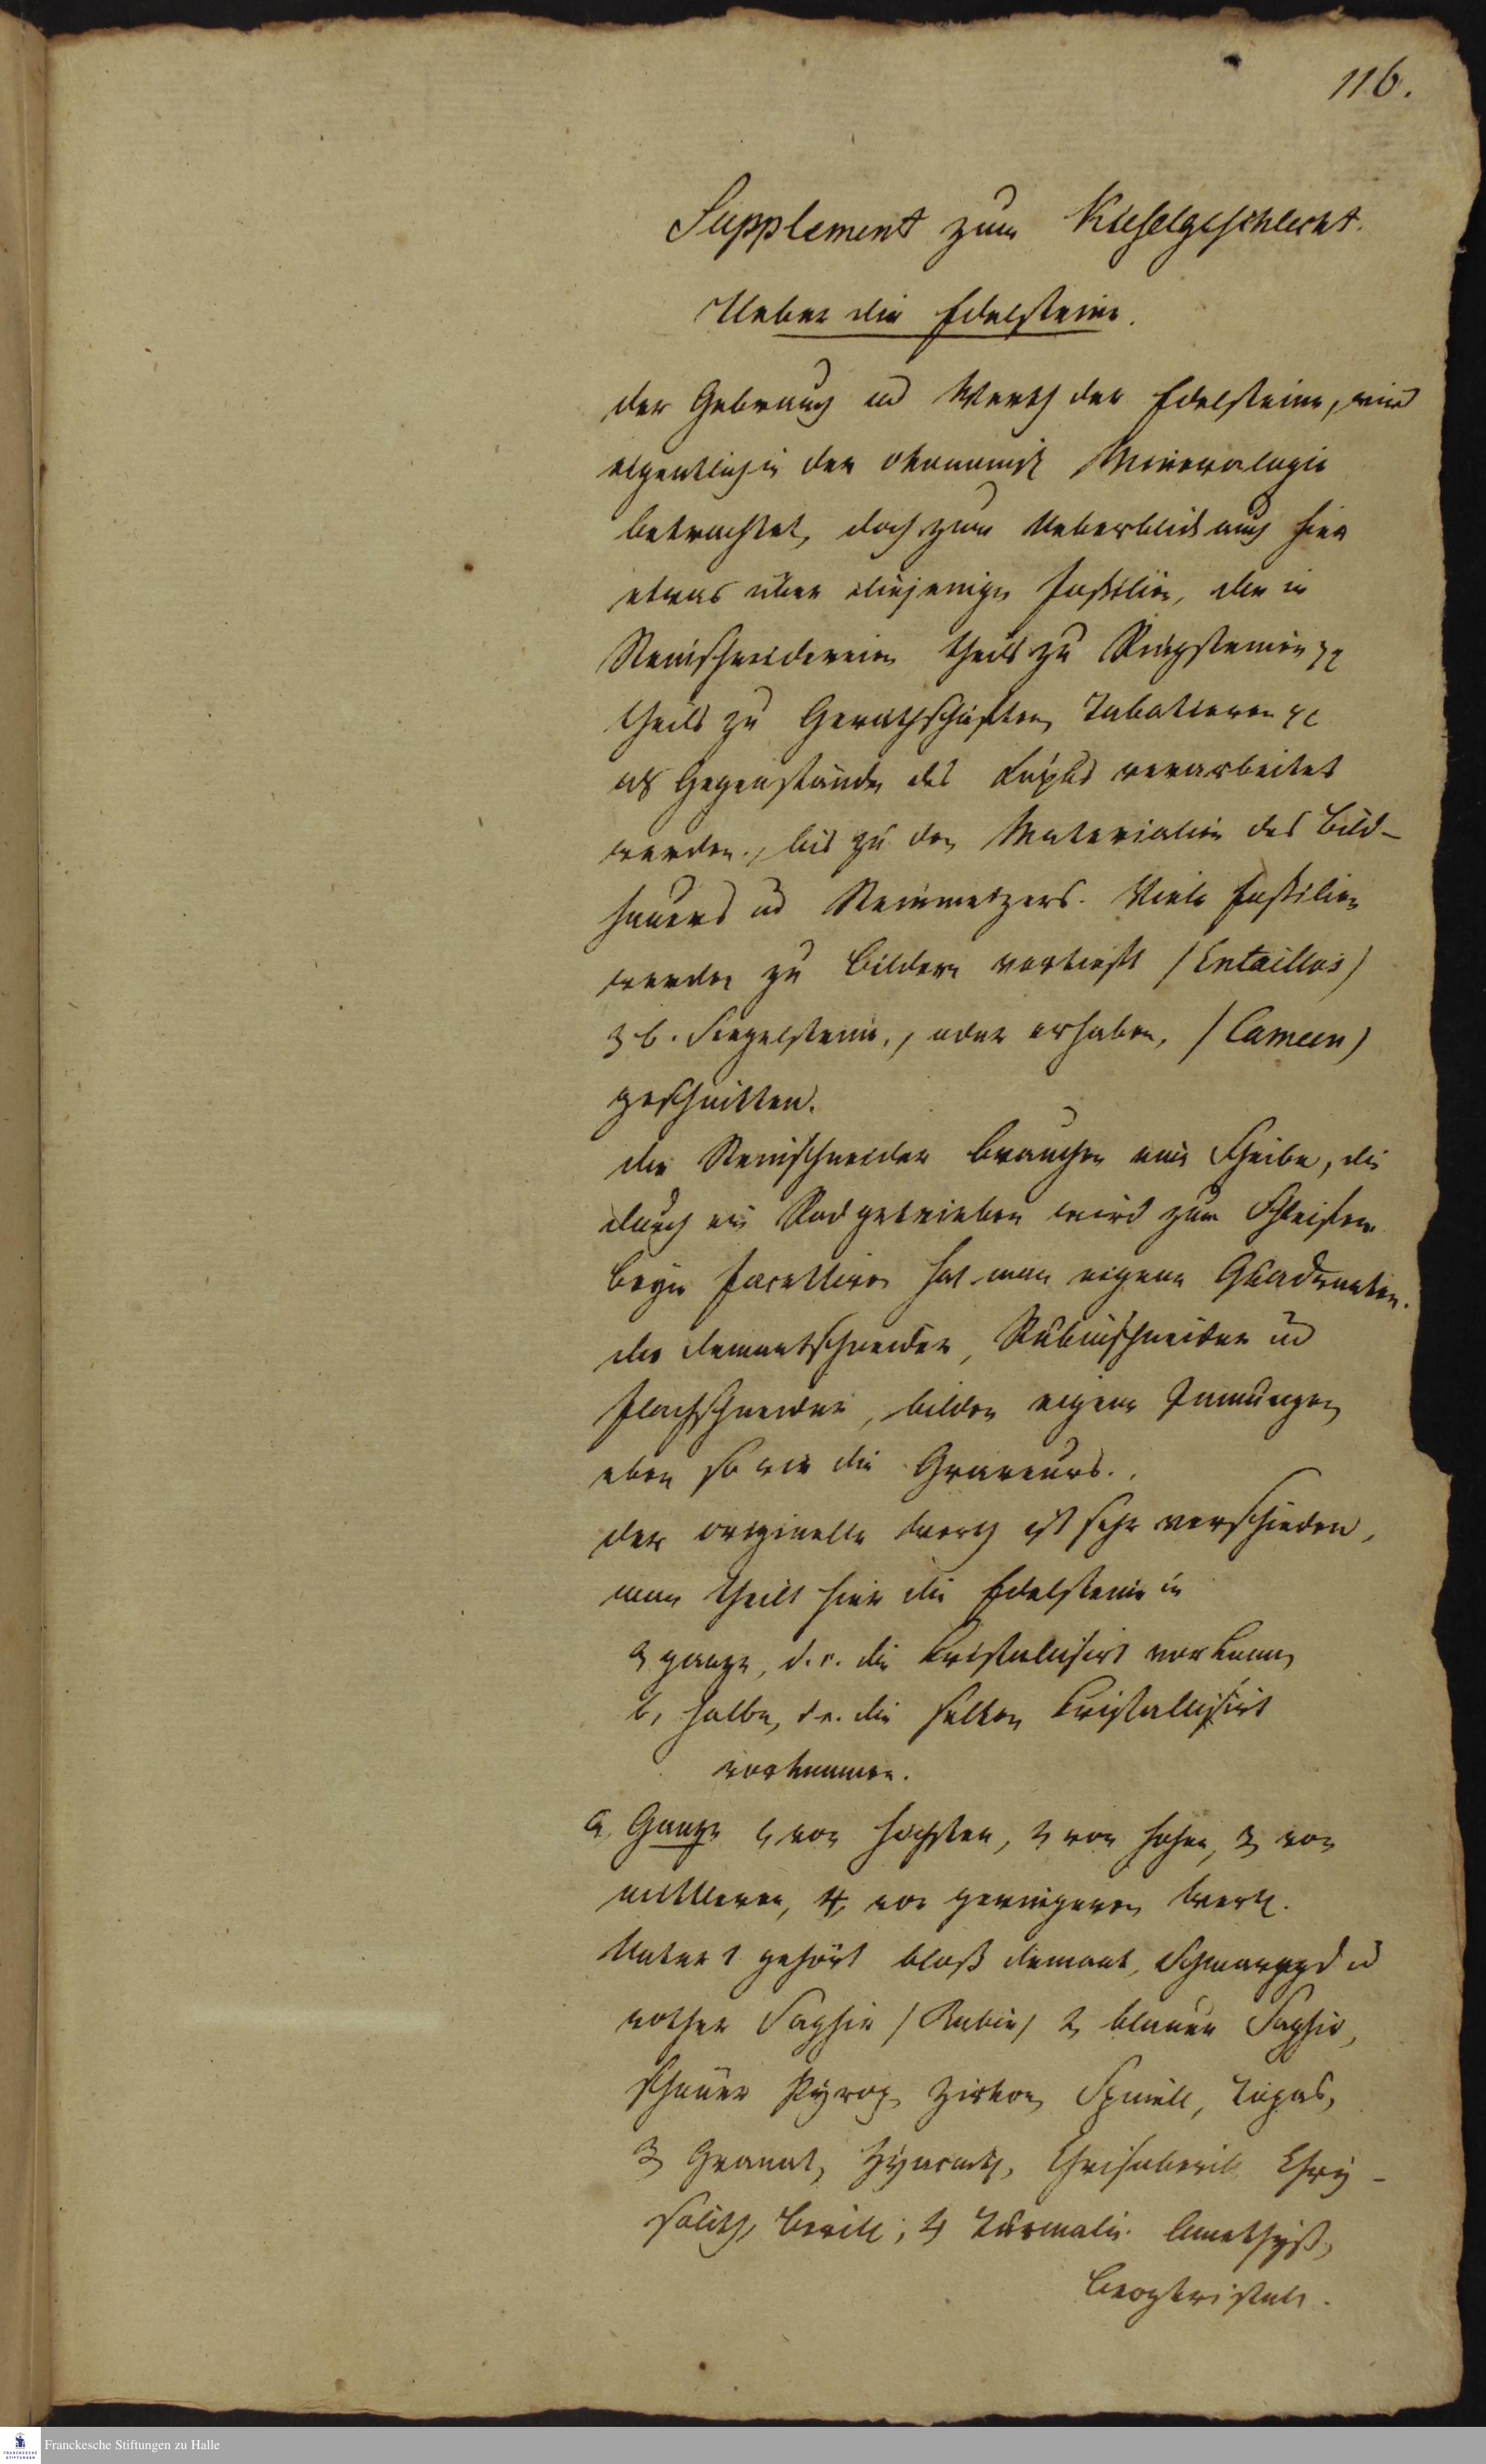 116.
Supplement zum Kieselgeschlecht.
Ueber die Edelsteine.
der Gebrauch ud Werth der Edelsteine, wird
eigentlich in der okonomisch Mineralogie
betrachtet, doch zum Ueberblick auch hier
etwas über diejenigen Foßilien, die in
Steinschneidereien theils zu Ringsteinen
theils zu Geräthschaften, Tabatieren
als Gegenstände des Luxus verarbeitet
werden, bis zu den Materialien des Bild-
hauers ud Steinmetzers. Viele Foßilien
werden zu Bildern vertieft /Entaillos/
z b. Siegelsteine, oder erhaben, /Cameen/
geschnitten.
die Steinschneider brauchen eine Scheibe, die
durch ein Rad getrieben wird zum Schleifen
beym facettiren hat man eigene Quadranten.
die demantschneider, Rubinschneider ud
flachschneider, bilden eigene Innungen
eben so wie die Graveurs.
der originelle Werth ist sehr verschieden,
man theilt hier die Edelsteine in
a, ganze, d. e. die kristallisirt vorkomm
b, halbe, d e. die selten kristallisirt
vorkommen.
a, Ganze 1, von höchsten, 2, von hohen, 3, von
mittleren, 4, von geringeren Werth.
Unter 1 gehört bloß demant, Schmaragd ud
rother Saphir /Rubin/ 2, blauer Saphir,
Pyrop, Zirkon, Spinell, Topas,
3, Granat, Hyacinth, Chrisoberill Chry-
solith, Berill; 4, Turmalin. Amethyst,
Bergkristall.
Franckesche Stiftungen zu Halle